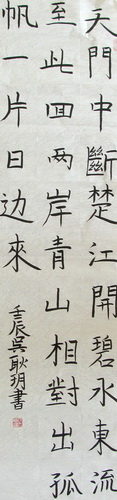 天門中斷楚江開碧水東流
至此回兩岸青山相對出孤
帆一片日边來
壬辰吳耿玥書